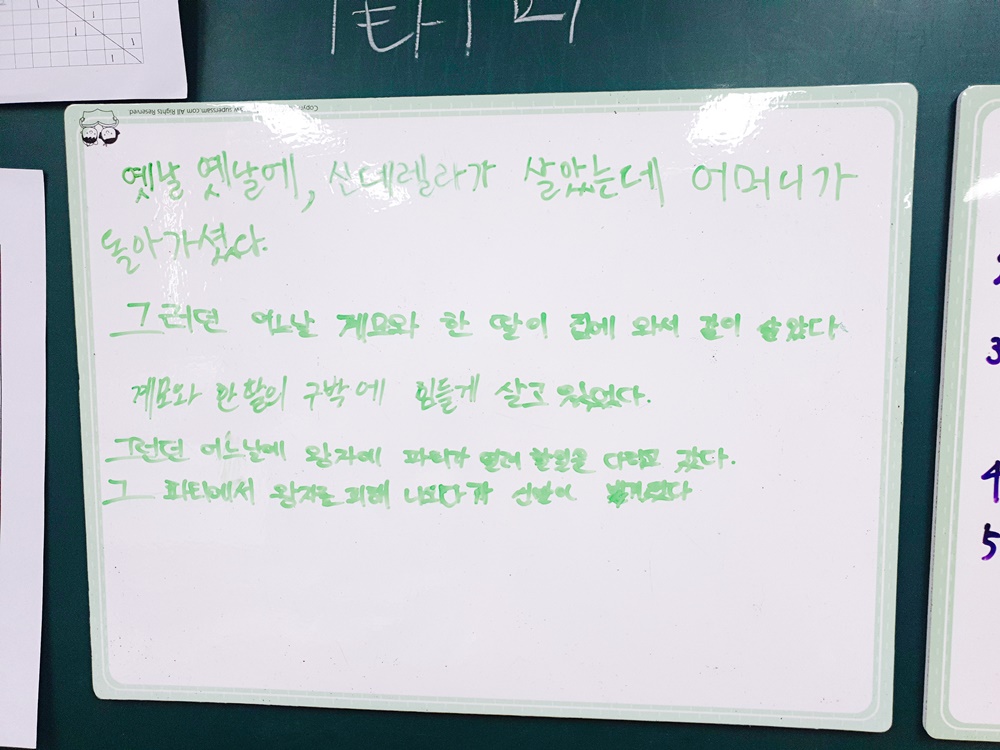 타
옛날 옛날에, 신데렐라가 살았는데 어머니가
돌아가셨다.
그러던 어느날 계모와 한 딸이 집에 와서 같이 살았다.
계모와 한 딸의 구박에 힘들게 살고 있었다.
그런던 어느날에 왕자에 파티가 열려 할일을 다하고 갔다.
그 파티에서 왕자를 피해 나오다가 신발이 벗겨졌다
Copyri www.superssam.com All Rights Reserved
1
1
1
3
4
5